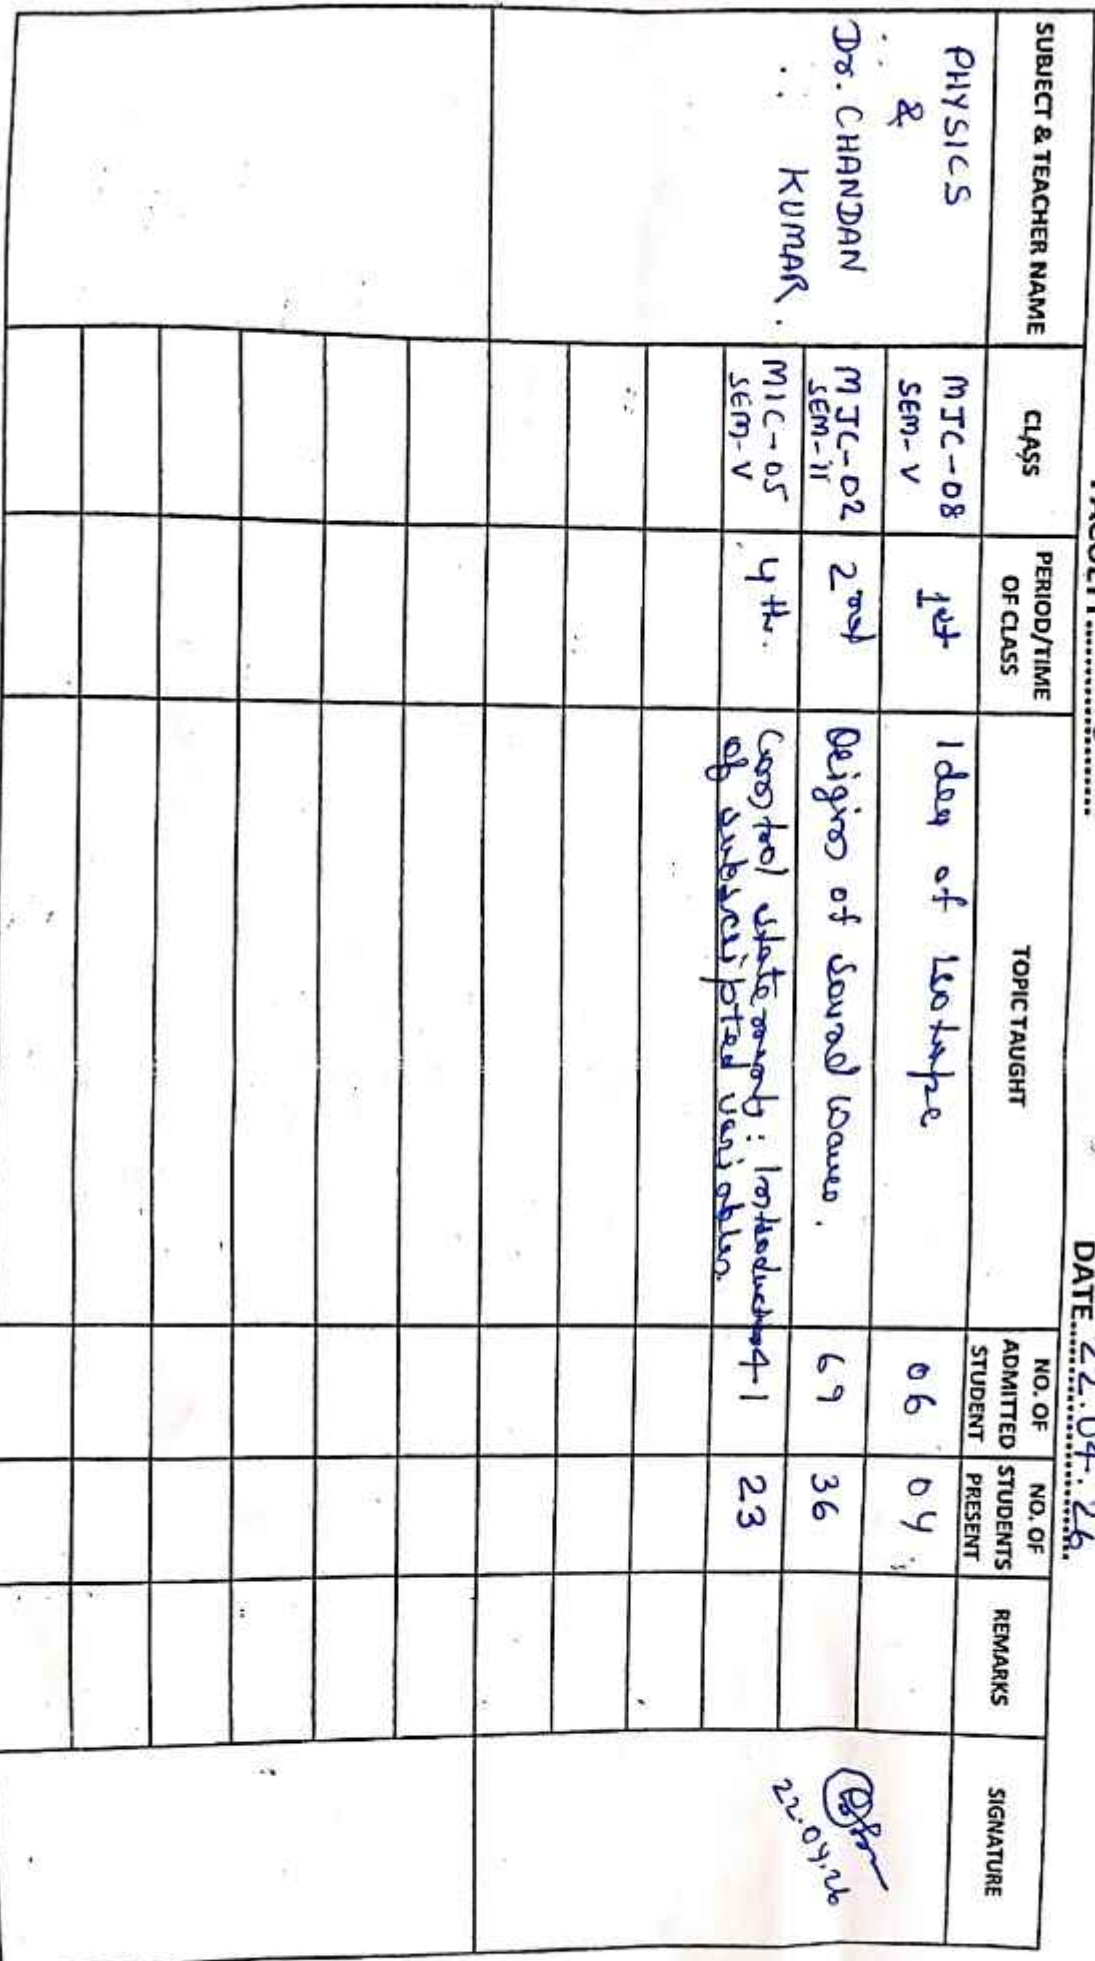 DATE 22.04.26
SUBJECT & TEACHER NAME
CLASS
PERIOD/TIME
OF CLASS
TOPIC TAUGHT
NO. OF
ADMITTED
STUDENT
NO. OF
STUDENTS
PRESENT
REMARKS
SIGNATURE
PHYSICS
&
Dr. CHANDAN
KUMAR.
MJC-08
SEM-V
1st
Idea of Isotope
06
04
MJC-02
SEM-II
2nd
Origin of Sound Waves.
69
36
MIC-05
SEM-V
4th.
Control statements: Introduction
of subscripted variables
41
23
22.04.26